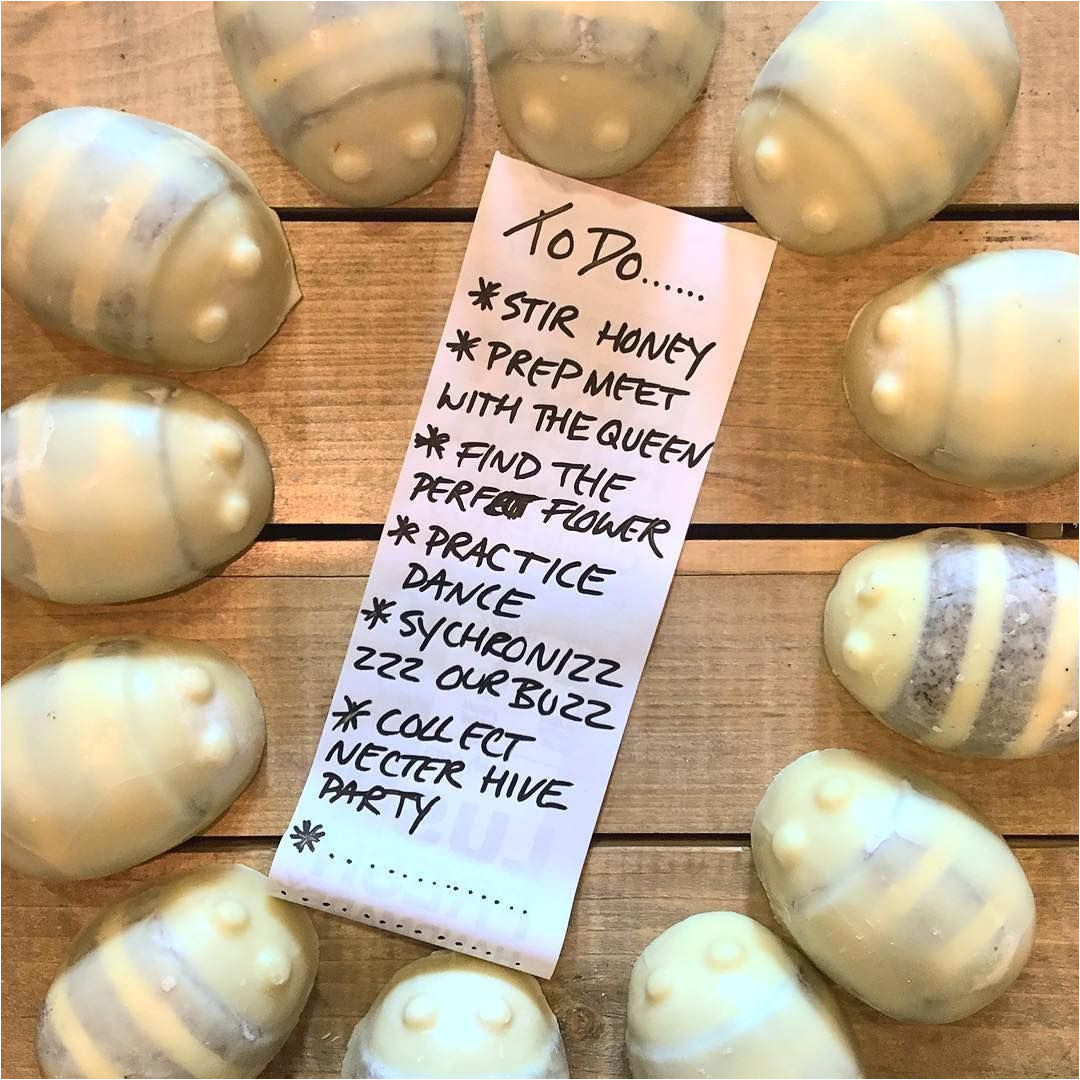 To Do......
* STIR HONEY
* PREP MEET
WITH THE QUEEN
* FIND THE
PERFECT FLOWER
* PRACTICE
DANCE
* SYCHRONIZZ
ZZZ OUR BUZZ
* COLLECT
NECTER HIVE
PARTY
* ............